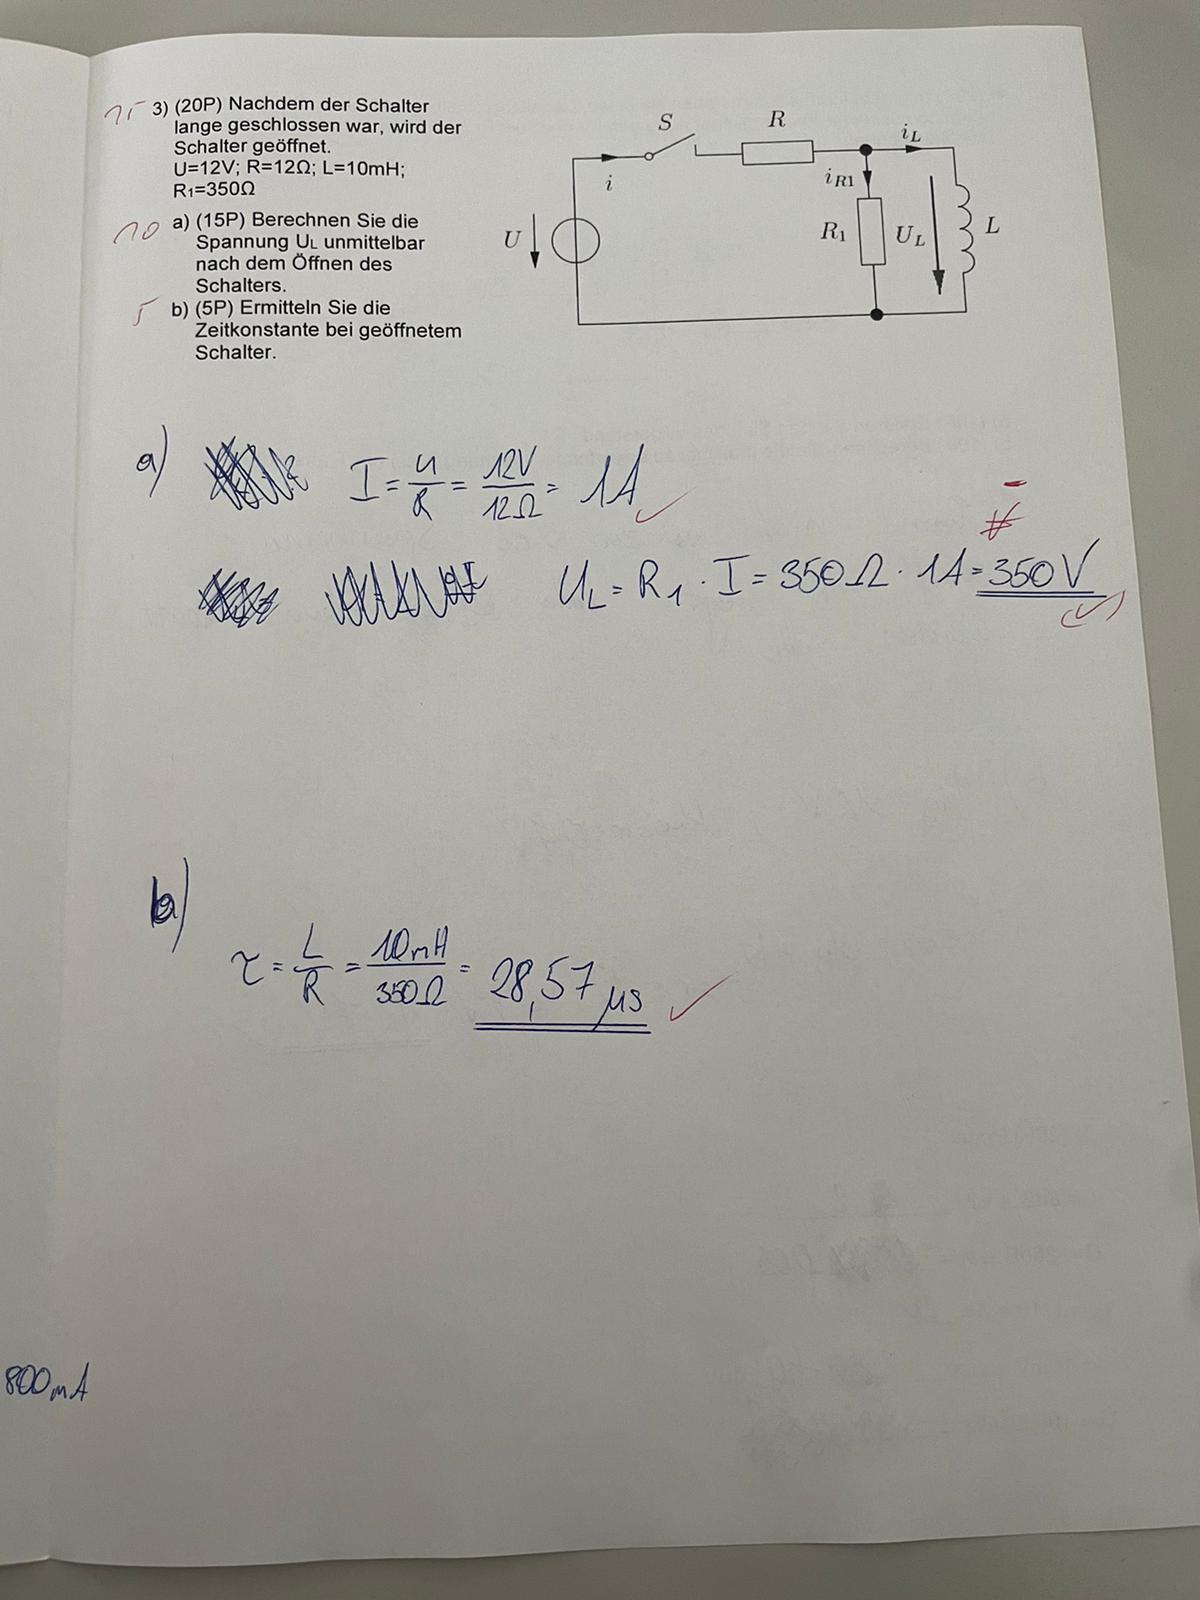 15 3) (20P) Nachdem der Schalter
lange geschlossen war, wird der
Schalter geöffnet.
U=12V; R=12Ω; L=10mH;
R₁=350Ω
10 a) (15P) Berechnen Sie die
Spannung UL unmittelbar
nach dem Öffnen des
Schalters.
5 b) (5P) Ermitteln Sie die
Zeitkonstante bei geöffnetem
Schalter.
S
R
iL
i
iR1
U
R₁
UL
L
a) I = U/R = 12V/12Ω = 1A ✓
-
UL = R₁ · I = 350Ω · 1A = 350V
(✓)
b)
τ = L/R = 10mH/350Ω = 28,57 µs ✓
800mA